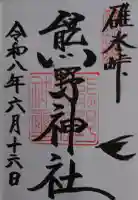 碓氷峠
熊野神社
令和八年六月十六日